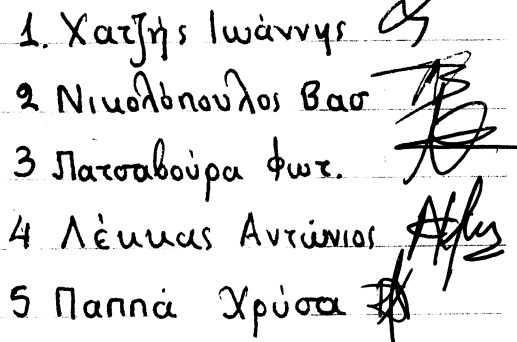 1. Χατζής Ιωάννης
2 Νικολόπουλος Βασ
3 Πατσαβούρα Φωτ.
4 Λέκκας Αντώνιος
5 Παππά Χρύσα